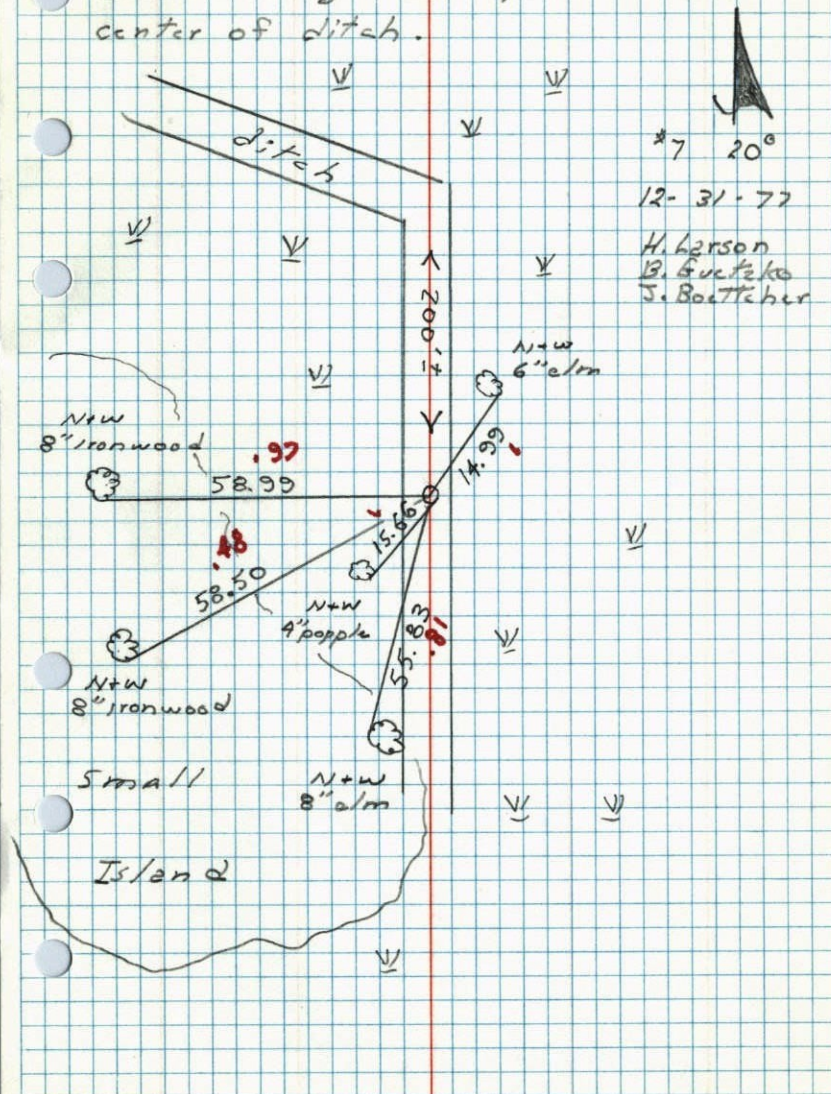 center of ditch.
ditch
#7 20°
12-31-77
H. Larson
B. Guetzko
J. Boettcher
200'±
N+W
6" elm
14.99
N+W
8" Ironwood
.97
58.99
15.66
.48
58.50
N+W
4" popple
55.83
.81
N+W
8" Ironwood
Small
N+W
8" elm
Island